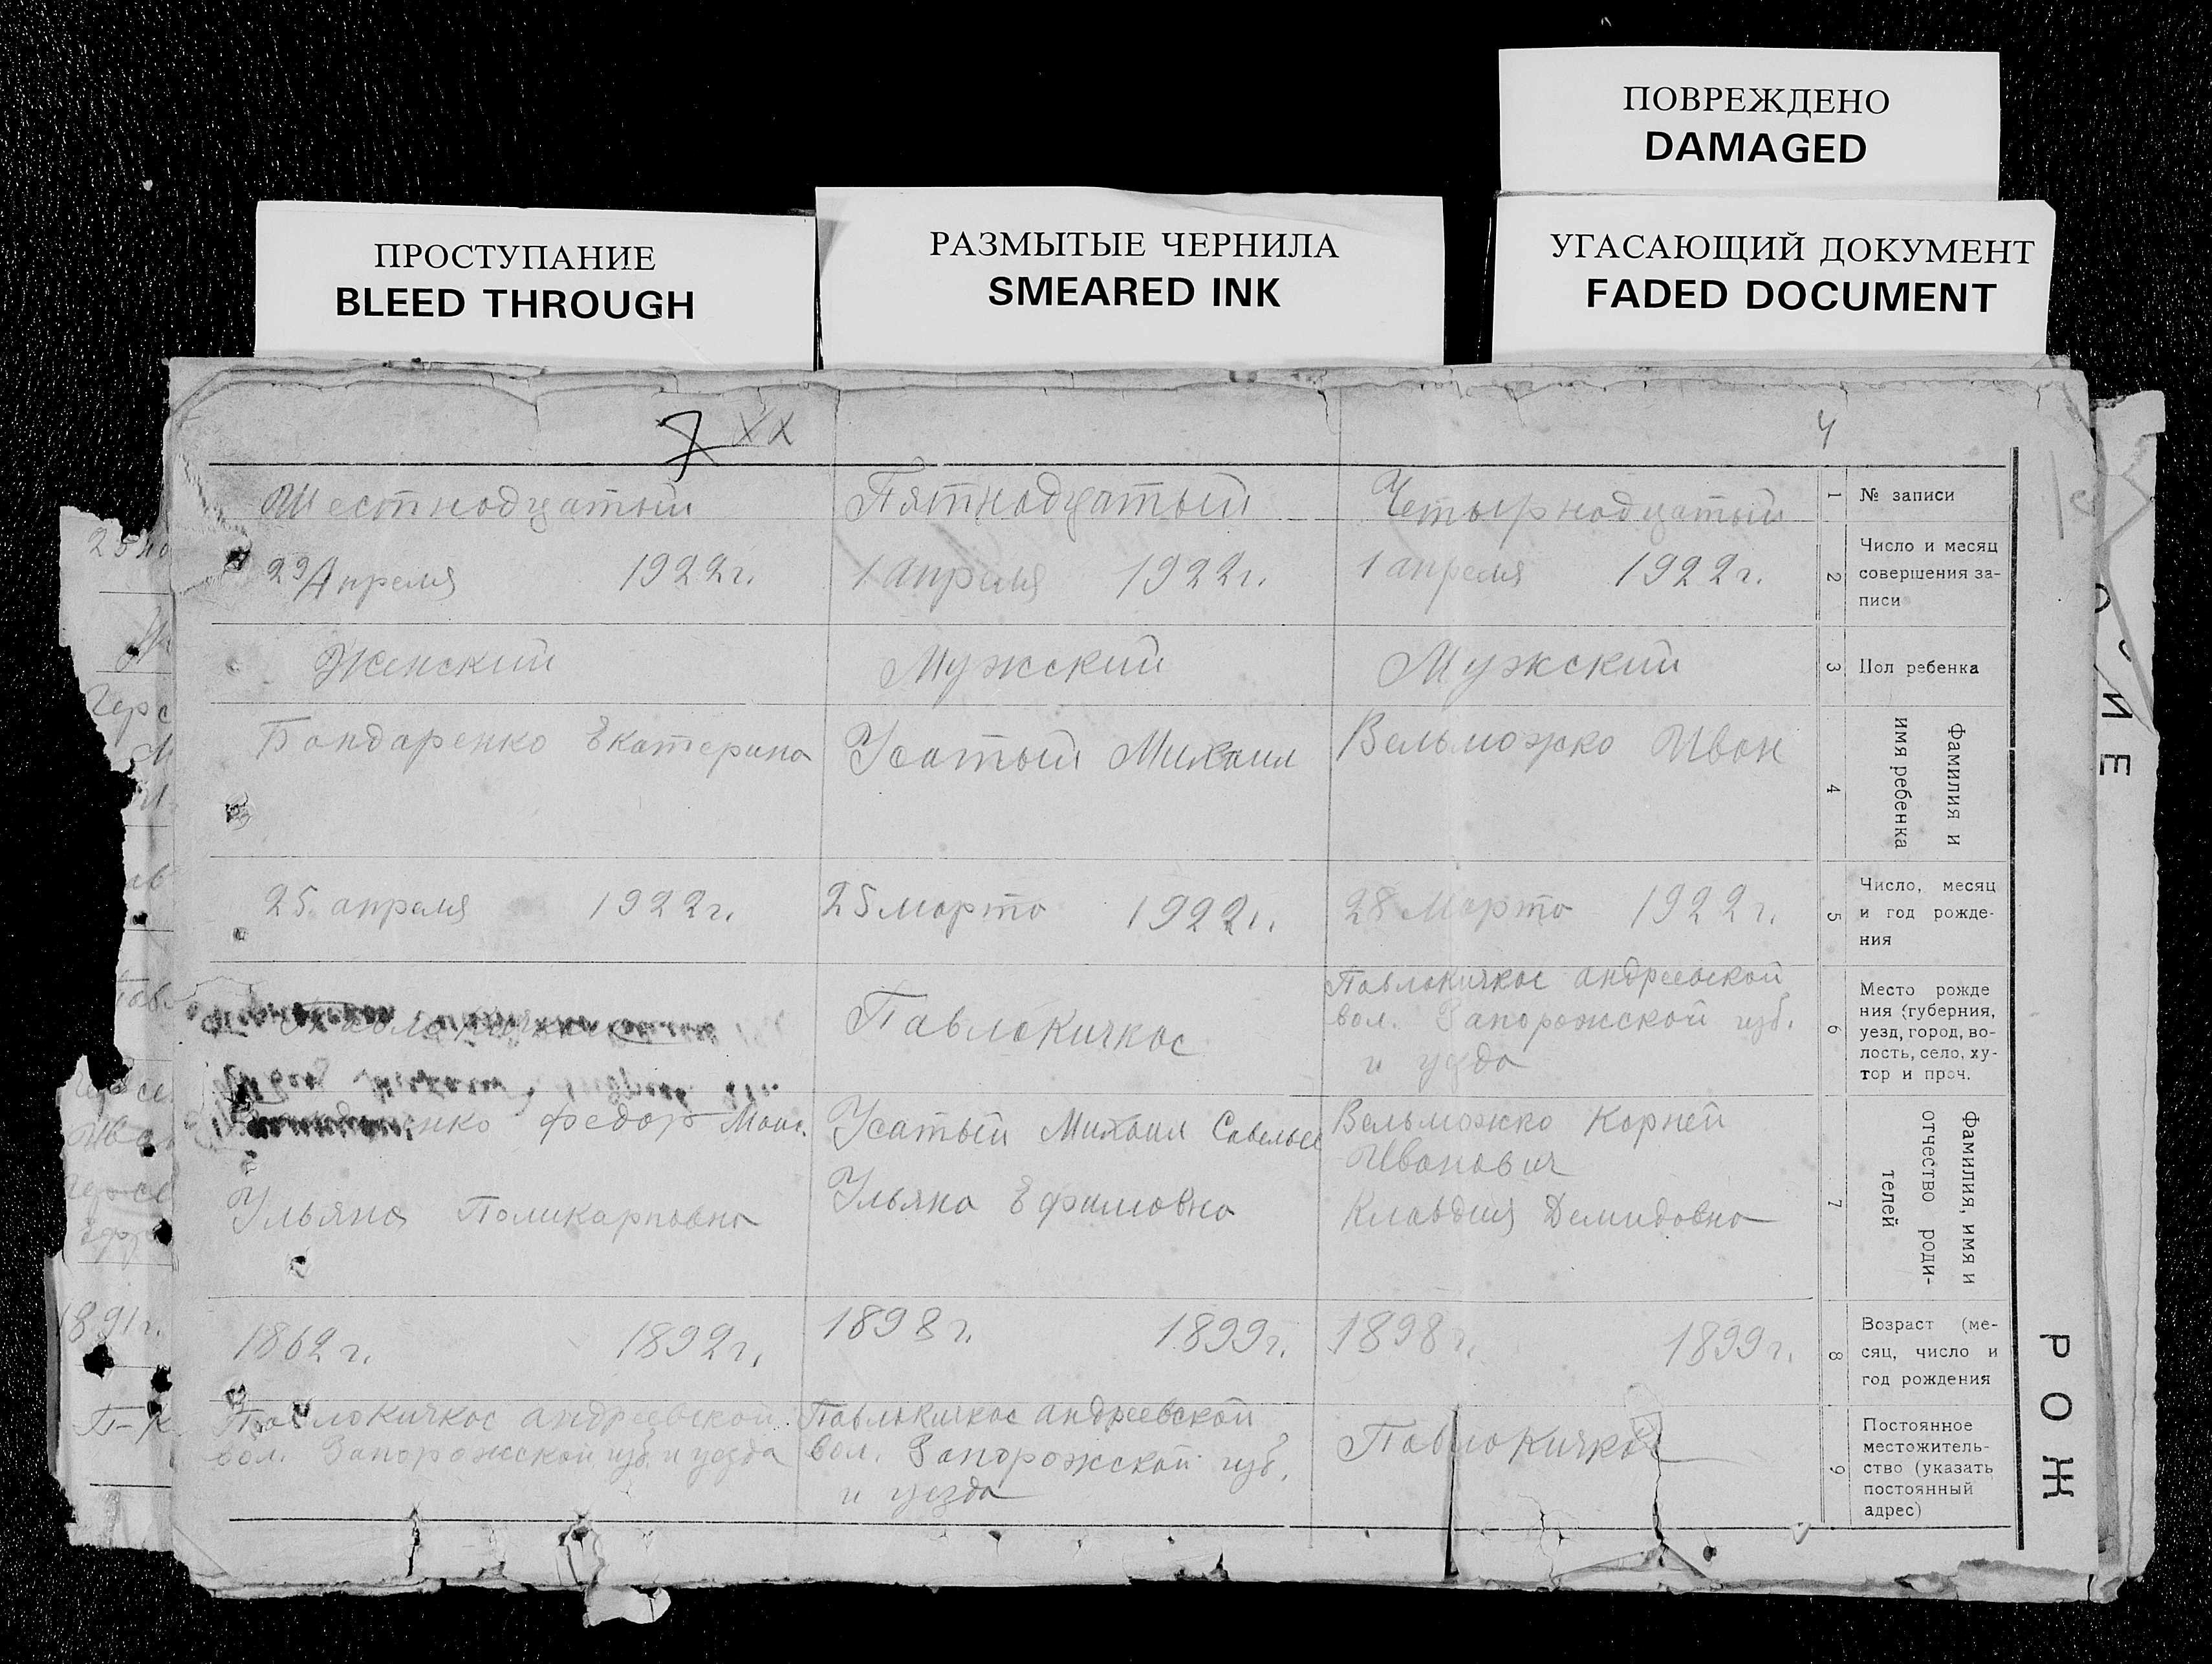 ПОВРЕЖДЕНО
DAMAGED
ПРОСТУПАНИЕ
BLEED THROUGH
РАЗМЫТЫЕ ЧЕРНИЛА
SMEARED INK
УГАСАЮЩИЙ ДОКУМЕНТ
FADED DOCUMENT
Шестнодцатый
Пятнодцатый
Четырнодцатый
1
№ записи
29 Апреля 1922 г.
1 апреля 1922 г.
1 апреля 1922 г.
2
Число и месяц
совершения за-
писи
Женский
Мужский
Мужский
3
Пол ребенка
Бондаренко Екатерина
Усатый Михаил
Вельможко Иван
4
Фамилия и
имя ребенка
25 апреля 1922 г.
25 марта 1922 г.
28 Марта 1922 г.
5
Число, месяц
и год рожде-
ния
Павлокичкас
Павлокичкас андреевской
вол. Запорожской губ.
и уезда
6
Место рожде
ния (губерния,
уезд, город, во-
лость, село, ху-
тор и проч.
Федор
Ульяна Поликарповна
Усатый Михаил Савельев
Ульяна Ефимовна
Вельможко Корней
Иванович
Клавдия Демидовна
7
Фамилия, имя и
отчество роди-
телей
1862 г. 1892 г.
1898 г. 1899 г.
1898 г. 1899 г.
8
Возраст (ме-
сяц, число и
год рождения
Павлокичкас андреевской
вол. Запорожской губ. и уезда
Павлокичкас андреевской
вол. Запорожской губ.
и уезда
Павлокичкас
9
Постоянное
местожитель-
ство (указать
постоянный
адрес)
РОЖ
1891 г.